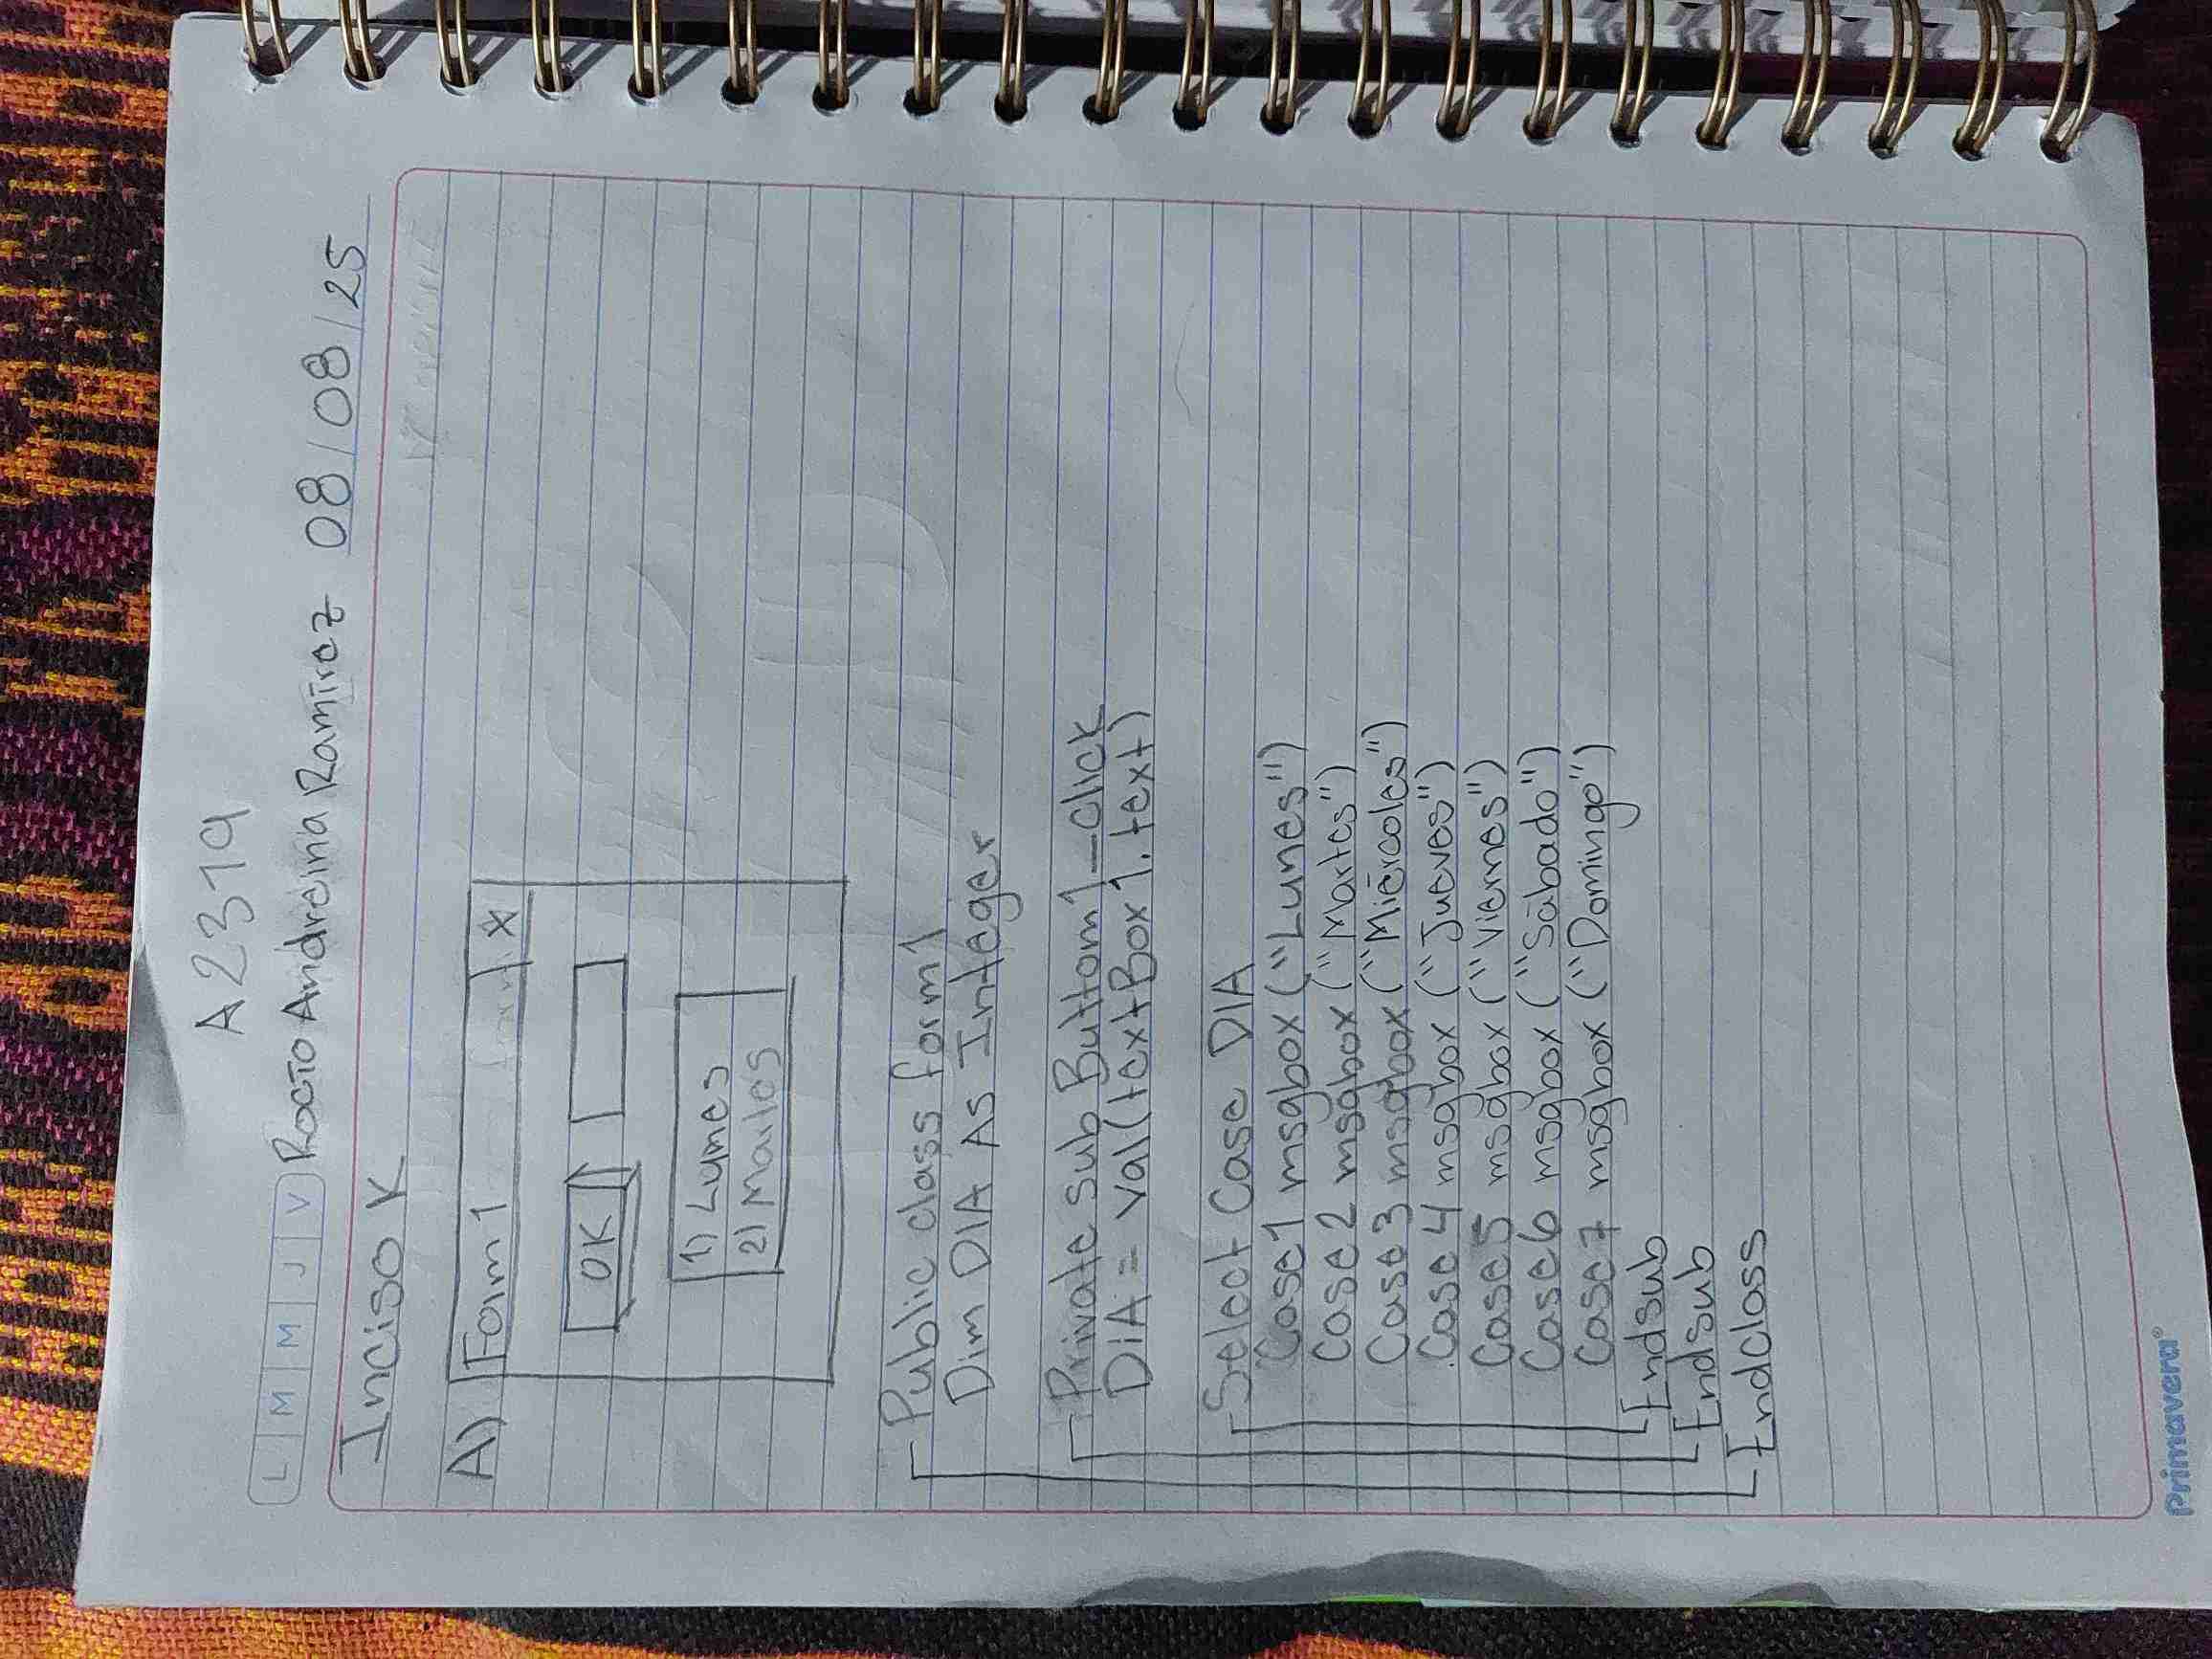 A2319
L M M J V Rocío Andreina Ramírez 08/08/25
Inciso K
A) Form 1 x
OK
1) Lunes
2) Martes
Public class form1
Dim DIA As Integer
Private sub Buttom1_click
DIA = val(textBox1.text)
Select Case DIA
Case1 msgbox ("Lunes")
Case2 msgbox ("Martes")
Case3 msgbox ("Miércoles")
Case 4 msgbox ("Jueves")
Case5 msgbox ("Viernes")
Case6 msgbox ("Sábado")
Case7 msgbox ("Domingo")
Endsub
Endsub
Endclass
Primavera®